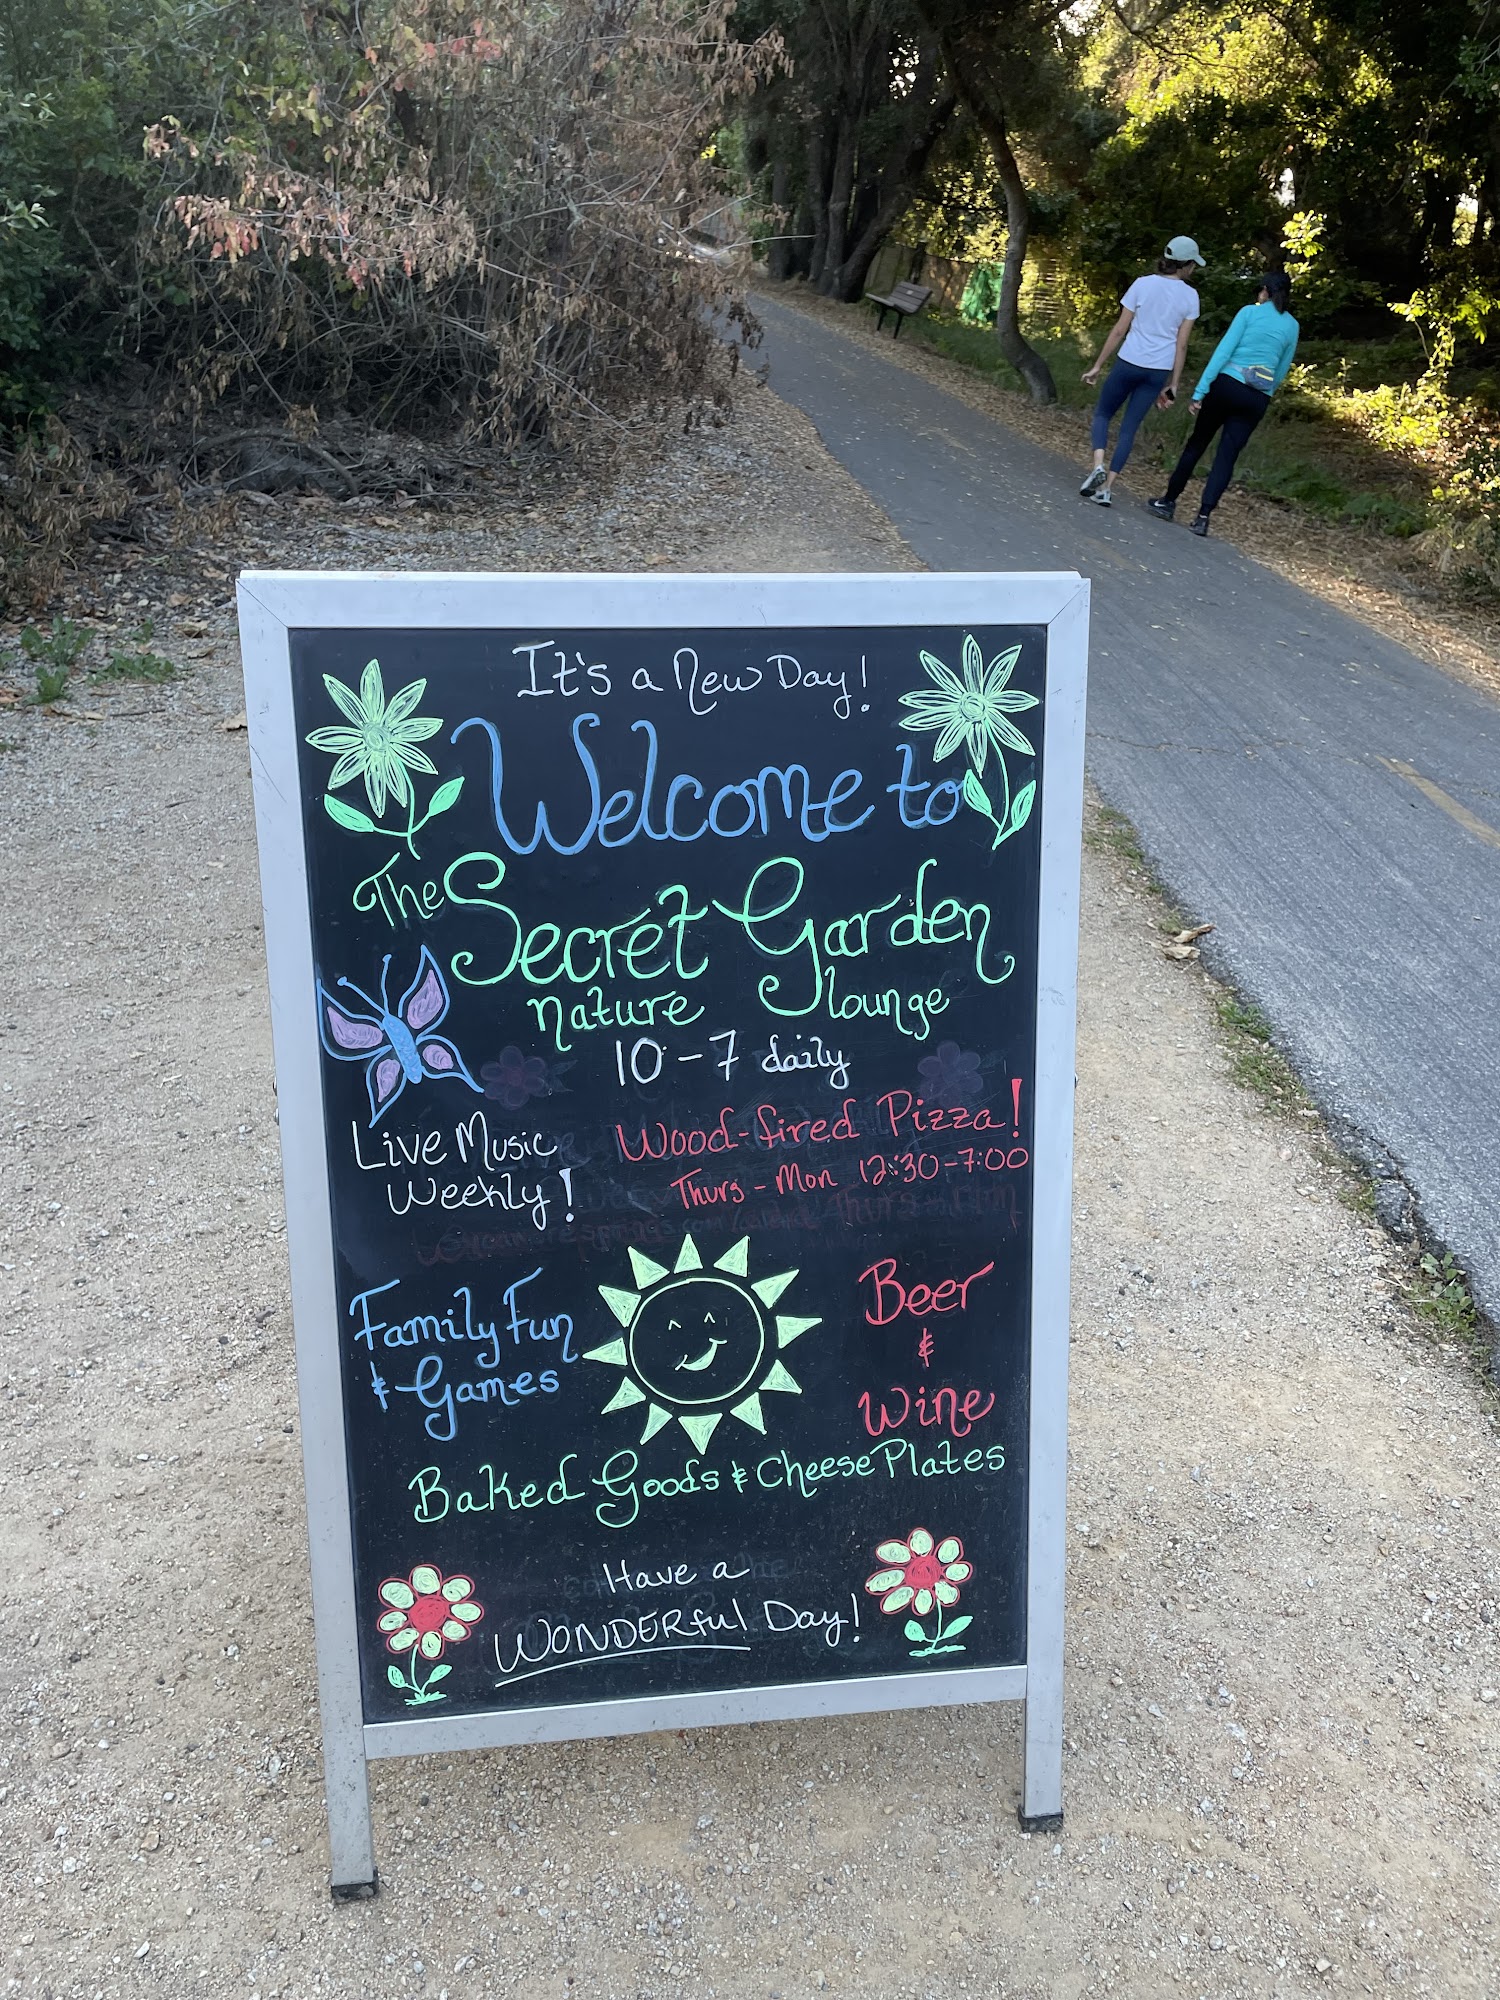 It's a New Day!
Welcome to
The Secret Garden
nature lounge
10-7 daily
Live Music
Weekly!
Wood-fired Pizza!
Thurs - Mon 12:30-7:00
Family Fun
& Games
Beer
&
Wine
Baked Goods & Cheese Plates
Have a
WONDERful Day!